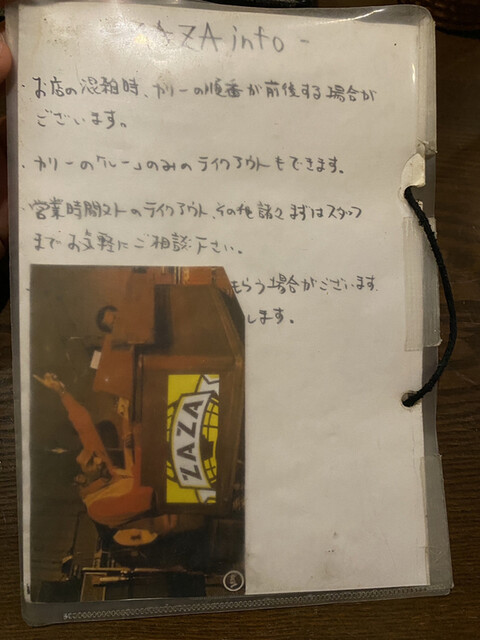 ZAZA info -
・お店の混雑時、カリーの順番が前後する場合が
ございます。
・カリーの「ルー」のみのテイクアウトもできます。
・営業時間外のテイクアウト、その他諸々まずはスタッフ
までお気軽にご相談下さい。
もらう場合がございます
します。
ZAZA